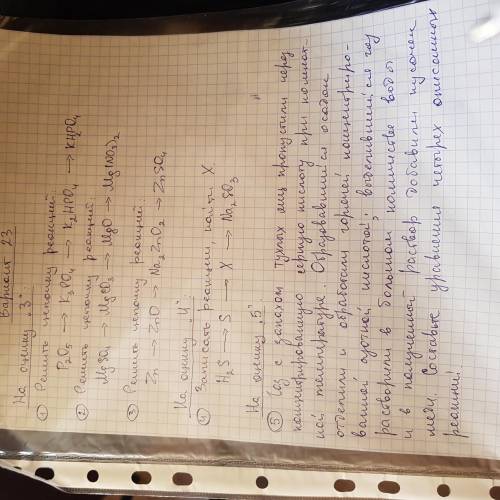 Вариант 23
На оценку „3"
① Решить цепочку реакций:
P₂O₅ → K₃PO₄ → K₂HPO₄ → KHPO₄
② Решить цепочку реакций:
MgSO₄ → MgCO₃ → MgO → Mg(NO₃)₂
③ Решить цепочку реакций:
Zn → ZnO → Na₂ZnO₂ → ZnSO₄
На оценку „4"
④ Записать реакции, найти X.
H₂S → S → X → Na₂SO₃
На оценку „5"
⑤ Газ с запахом тухлых яиц пропустили через
концентрированную серную кислоту при комнат-
ной температуре. Образовавшийся осадок
отделили и обработали горячей концентриро-
ванной азотной кислотой; выделившийся газ
растворили в большом количестве воды
и в полученный раствор добавили кусочек
меди. Составьте уравнения четырех описанных
реакций.